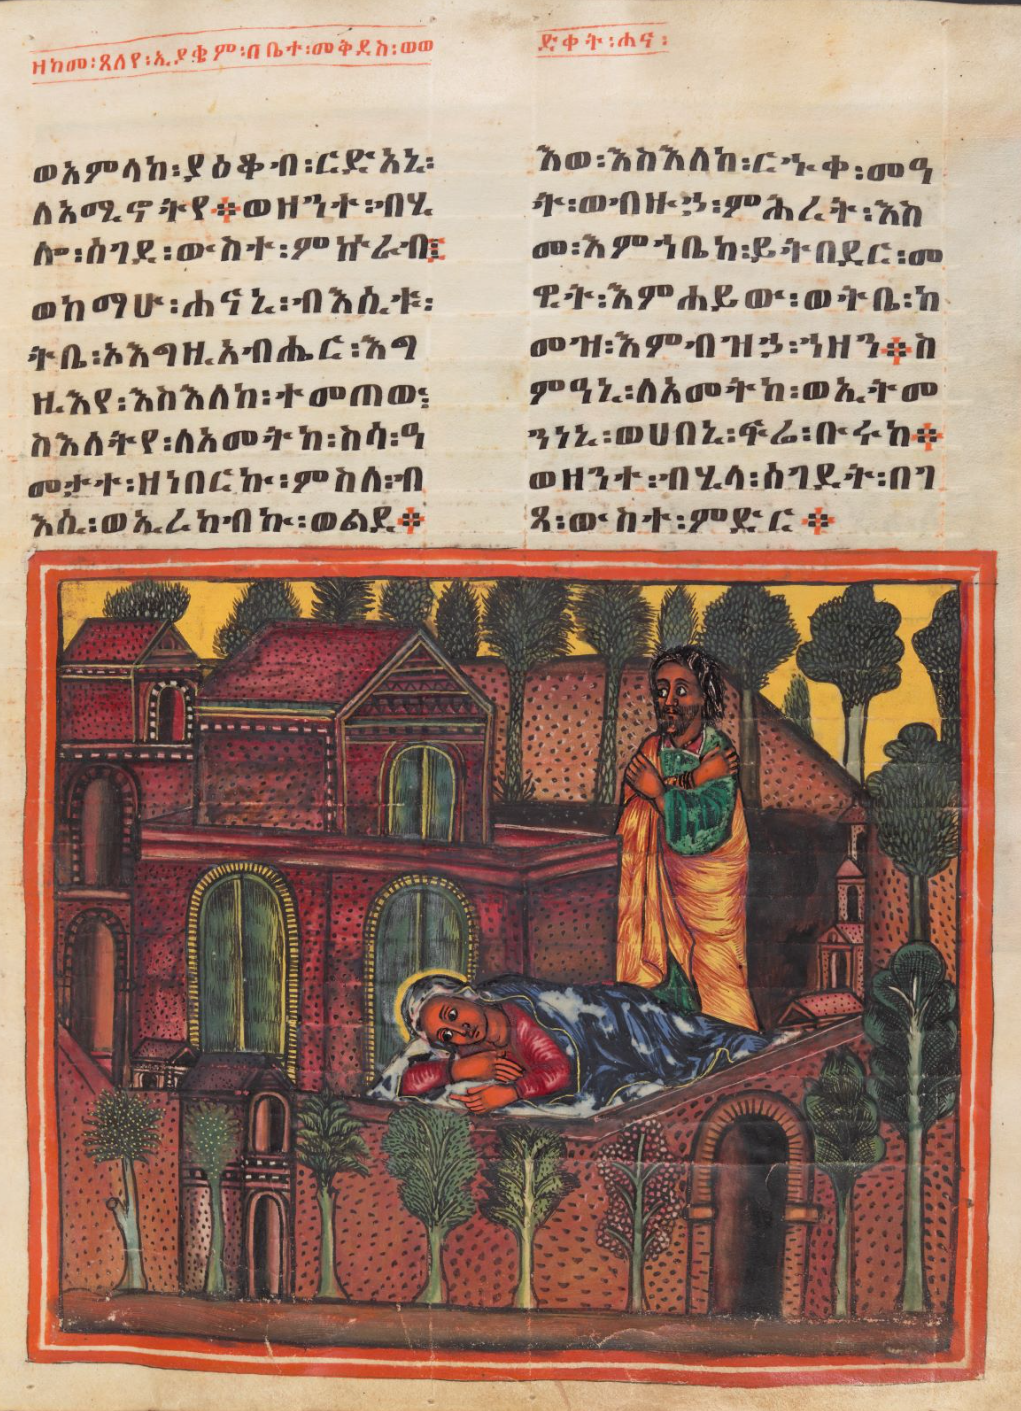 ዘከመ፡ጸለየ፡ኢያቄም፡በቤተ፡መቅደስ፡ወወ
ድቀት፡ሐና፡
ወአምላከ፡ያዕቆብ፡ርድአኒ፡
ለአሚኖትየ፨ወዘንተ፡ብሂ
ሎ፡ሰገደ፡ውስተ፡ምኵራብ፤
ወከማሁ፡ሐናኒ፡ብእሲቱ፡
ትቤ፡ኦእግዚአብሔር፡እግ
ዚእየ፡እስእለከ፡ተመጠው፤
ስእለትየ፡ለአመትከ፡ስሳ፡ዓ
መታተ፡ዘነበርኩ፡ምስለ፡ብ
እሲ፡ወኢረከብኩ፡ወልደ፨
እወ፡እስእለከ፡ርኁቀ፡መዓ
ት፡ወብዙኃ፡ምሕረት፡እስ
መ፡እምኀቤከ፡ይትበደር፡መ
ዊት፡እምሐይው፡ወትቤ፡ከ
መዝ፡እምብዝኃ፡ኀዘን፨ስ
ምዓኒ፡ለአመትከ፡ወኢትመ
ንነኒ፡ወሀበኒ፡ፍሬ፡ቡሩከ፨
ወዘንተ፡ብሂላ፡ሰገደት፡በገ
ጻ፡ውስተ፡ምድር፨